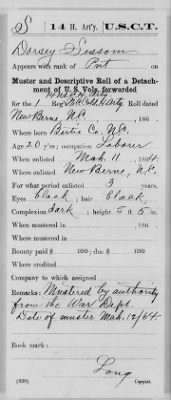 S 14 H. Art'y. U.S.C.T.
Dorsey Sessom
Appears with rank of Pvt on
Muster and Descriptive Roll of a Detach-
ment of U. S. Vols. forwarded
for the 1 Reg't Roll dated
New Berne, N.C. 186 .
Where born Bertie Co, N.C.
Age 20 y'rs; occupation Laborer
When enlisted Mch. 11, 1864.
Where enlisted New Berne, N.C.
For what period enlisted 3 years.
Eyes black; hair black
Complexion dark; height 5 ft. 5 in.
When mustered in 186 .
Where mustered in
Bounty paid $ 100; due $ 100
Where credited
Company to which assigned
Remarks: Mustered by authority
from the War Dept.
Date of muster Mch. 12/64.
Book mark:
Long
(339) Copyist.